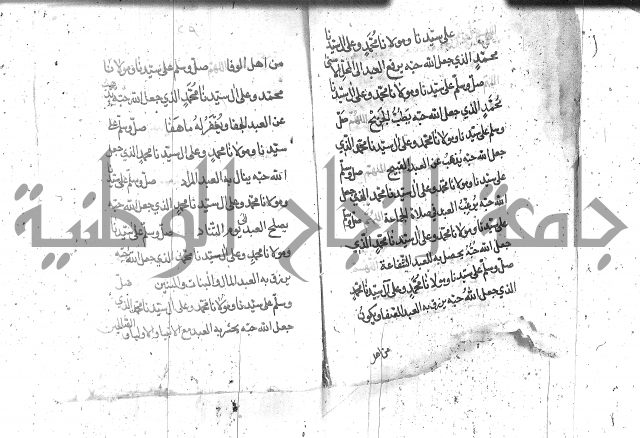 على سيدنا ومولانا محمد وعلى ال سيدنا
محمد الذي جعل الله حبه يرفع العبد الى
اللهم صل وسلم على سيدنا ومولانا محمد وعلى ال سيدنا
محمد الذي جعل الله حبه اللهم صل
وسلم على سيدنا ومولانا محمد وعلى ال سيدنا محمد الذي
جعل الله حبه يذهب عن العبد القبيح اللهم صل وسلم
على سيدنا ومولانا محمد وعلى ال سيدنا محمد الذي جعل
الله حبه العبد صل وسلم
على سيدنا ومولانا محمد وعلى ال سيدنا محمد الذي
جعل الله حبه يحصل به العبد الشفاعة اللهم
صل وسلم على سيدنا ومولانا محمد وعلى ال سيدنا محمد
الذي جعل الله حبه يزق به العبد الصفا ويكون
من اهل
من اهل الوفا اللهم صل وسلم على سيدنا ومولانا
محمد وعلى ال سيدنا محمد الذي جعل الله حبه
عن العبد الجفا ويغفر له ما هفا صل وسلم على
سيدنا ومولانا محمد وعلى ال سيدنا محمد الذي جعل
الله حبه ينال به العبد صل وسلم على سيدنا
ومولانا محمد وعلى ال سيدنا محمد الذي جعل الله حبه
يصلح العبد يوم التناد صل وسلم على سيدنا
ومولانا محمد وعلى ال سيدنا محمد الذي جعل الله حبه
يرزق به العبد المال والبنات والبنين صل
وسلم على سيدنا ومولانا محمد وعلى ال سيدنا محمد الذي
جعل الله حبه يحشر به العبد مع الانبياء والاولياء والصالحين
جامعة النجاح الوطنية